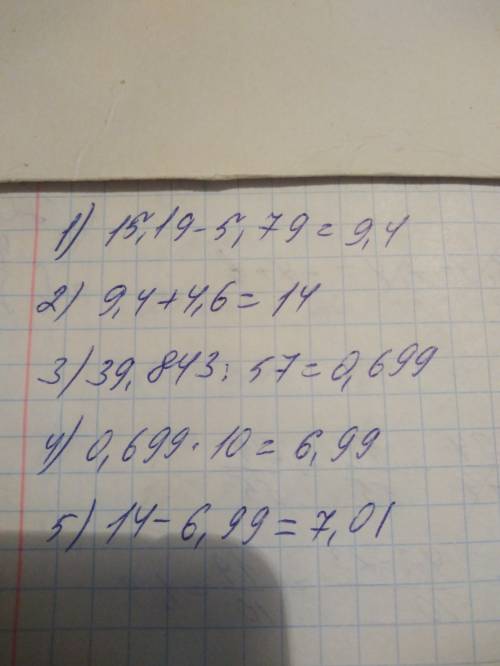 1) 15,19-5,79=9,4
2) 9,4+4,6=14
3) 39,843:57=0,699
4) 0,699·10=6,99
5) 14-6,99=7,01